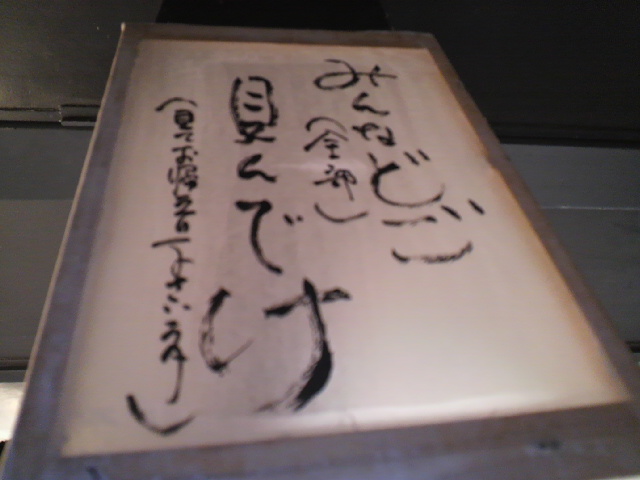 みんなどご
(全部)
見んでけ
(見てお帰り下さい)